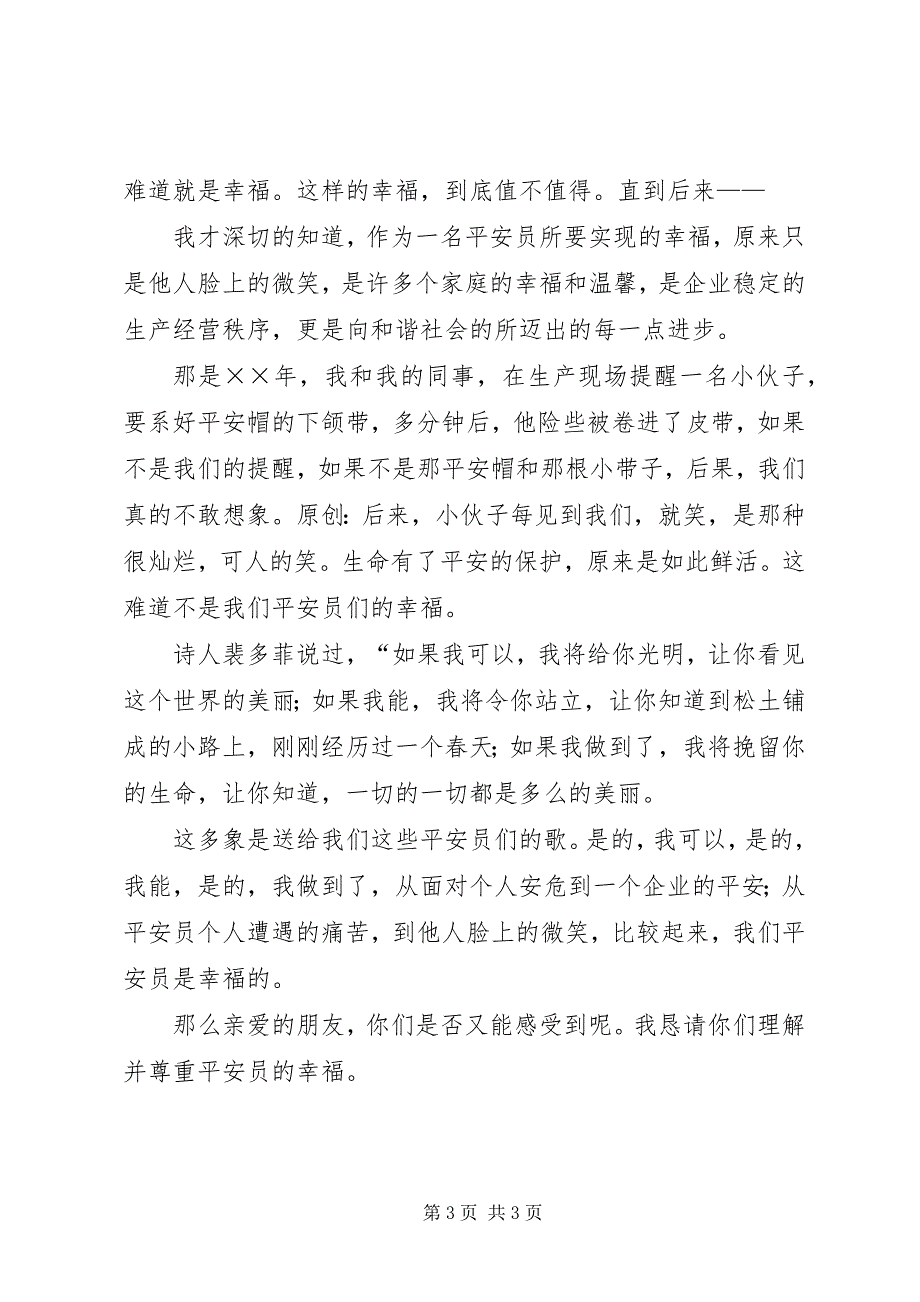 难道就是幸福。这样的幸福，到底值不值得。直到后来——
我才深切的知道，作为一名平安员所要实现的幸福，原来只
是他人脸上的微笑，是许多个家庭的幸福和温馨，是企业稳定的
生产经营秩序，更是向和谐社会的所迈出的每一点进步。
那是××年，我和我的同事，在生产现场提醒一名小伙子，
要系好平安帽的下颌带，多分钟后，他险些被卷进了皮带，如果
不是我们的提醒，如果不是那平安帽和那根小带子，后果，我们
真的不敢想象。原创：后来，小伙子每见到我们，就笑，是那种
很灿烂，可人的笑。生命有了平安的保护，原来是如此鲜活。这
难道不是我们平安员们的幸福。
诗人裴多菲说过，“如果我可以，我将给你光明，让你看见
这个世界的美丽；如果我能，我将令你站立，让你知道到松土铺
成的小路上，刚刚经历过一个春天；如果我做到了，我将挽留你
的生命，让你知道，一切的一切都是多么的美丽。
这多象是送给我们这些平安员们的歌。是的，我可以，是的，
我能，是的，我做到了，从面对个人安危到一个企业的平安；从
平安员个人遭遇的痛苦，到他人脸上的微笑，比较起来，我们平
安员是幸福的。
那么亲爱的朋友，你们是否又能感受到呢。我恳请你们理解
并尊重平安员的幸福。
第 3 页 共 3 页